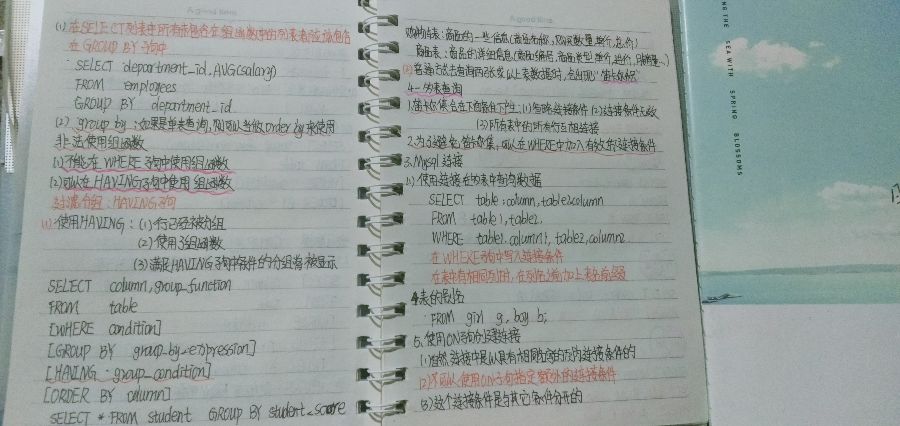 A good time
(1) 在SELECT列表中所有未包含在组函数中的列都应该包含
在 GROUP BY 子句中
SELECT department_id, AVG(salary)
FROM employees
GROUP BY department_id
(2) group by:如果是单表查询,则可以当做order by来使用
非法使用组函数
(1)不能在 WHERE 子句中使用组函数
(2)可以在 HAVING 子句中使用组函数
过滤分组:HAVING子句
(1)使用HAVING:(1)行已经被分组
(2)使用了组函数
(3)满足HAVING子句中条件的分组将被显示
SELECT column, group_function
FROM table
[WHERE condition]
[GROUP BY group_by_expression]
[HAVING group_condition]
[ORDER BY column]
SELECT * FROM student GROUP BY student_score
A good time
购物车表:商品的一些信息(商品名称,购买数量,单价,总价)
商品表:商品的详细信息(商品编号,商品类型,单价,
(2)普通方式去查询两张或以上表数据时,会出现"笛卡尔积"
4一多表查询
1.笛卡尔集会在下面条件下产生:(1)省略连接条件 (2)连接条件无效
(3)所有表中的所有行互相连接
2.为了避免笛卡尔集,可以在WHERE中加入有效的连接条件
3.Mysql 连接
(1)使用连接在多表中查询数据
SELECT table1.column, table2.column
FROM table1, table2.
WHERE table1.column1, table2.column2
在WHERE子句中写入连接条件
在表中有相同列时,在列名之前加上表名前缀
4.表的别名
FROM girl g, boy b;
5.使用ON子句创建连接
(1)自然连接中是以具有相同名字的列为连接条件的
(2)可以使用ON子句指定额外的连接条件
(3)这个连接条件是与其它条件分开的
THE SEA WITH SPRING BLOSSOMS